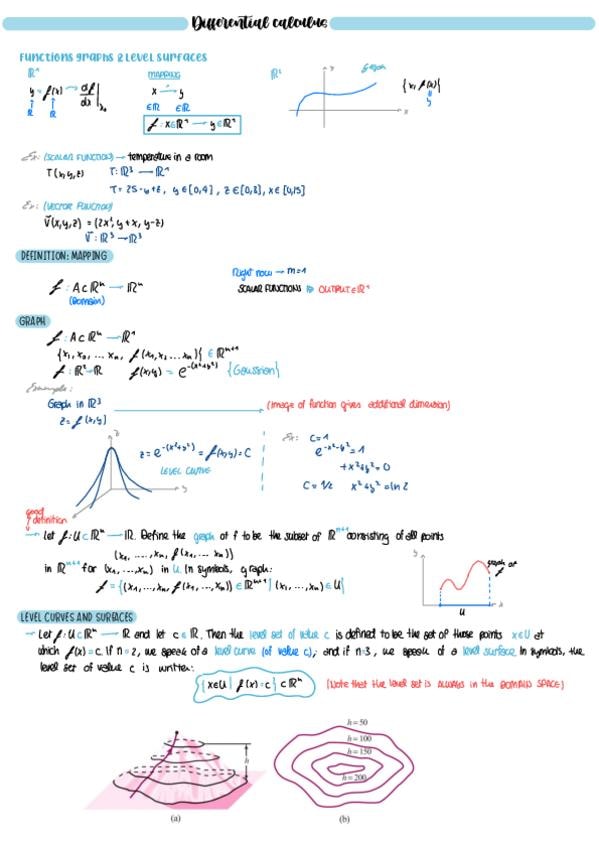 Differential calculus
FUNCTIONS GRAPHS & LEVEL SURFACES
ℝ¹
y = f(x) → df/dx |x₀
ℝ ℝ
MAPPING
x → y
∈ℝ ∈ℝ
f: x∈ℝ¹ → y∈ℝ¹
ℝ²
Graph
x
{x, f(x)}
y
Ex: (SCALAR FUNCTION) → temperature in a room
T(x,y,z) T: ℝ³ → ℝ¹
T = 25 - y + z, y∈[0,4], z∈[0,3], x∈[0,15]
Ex: (VECTOR FUNCTION)
V(x,y,z) = (2x², y+x, y-z)
V: ℝ³ → ℝ³
DEFINITION: MAPPING
f: A⊂ℝⁿ → ℝᵐ
(Domain)
Right now → m=1
SCALAR FUNCTIONS OUTPUT∈ℝ¹
GRAPH
f: A⊂ℝⁿ → ℝ¹
{x₁, x₂, ... xₙ, f(x₁, x₂ ... xₙ)} ∈ ℝⁿ⁺¹
f: ℝ² → ℝ f(x,y) = e^-(x²+y²) {Gaussian}
Example:
Graph in ℝ³ (Image of function gives additional dimension)
z = f(x,y)
z
y
z = e^-(x²+y²) = f(x,y) = C
LEVEL CURVE
Ex: C=1
e^-x²-y² = 1
+x²+y² = 0
C = 1/2 x²+y² = ln 2
good definition
→ Let f: U⊂ℝⁿ → ℝ. Define the graph of f to be the subset of ℝⁿ⁺¹ consisting of all points
(x₁, ..., xₙ, f(x₁, ... xₙ))
in ℝⁿ⁺¹ for (x₁, ..., xₙ) in U. In symbols, graph:
f = {(x₁, ..., xₙ, f(x₁, ..., xₙ)) ∈ ℝⁿ⁺¹ | (x₁, ..., xₙ) ∈ U}
y
graph of
U
x
LEVEL CURVES AND SURFACES
→ Let f: U⊂ℝⁿ → ℝ and let c∈ℝ. Then the level set of value c is defined to be the set of those points x∈U at
which f(x) = c. If n=2, we speak of a level curve (of value c); and if n=3, we speak of a level surface. In symbols, the
level set of value c is written:
{x∈U | f(x)=c} ⊂ ℝⁿ (Note that the level set is ALWAYS in the DOMAIN SPACE)
h
(a)
h=50
h=100
h=150
h=200
(b)